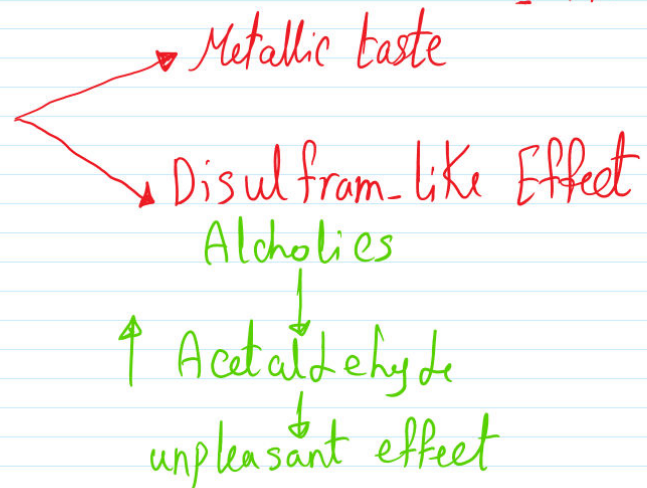 Metallic taste
Disulfram-like Effect
Alcholics
Acetaldehyde
unpleasant effect